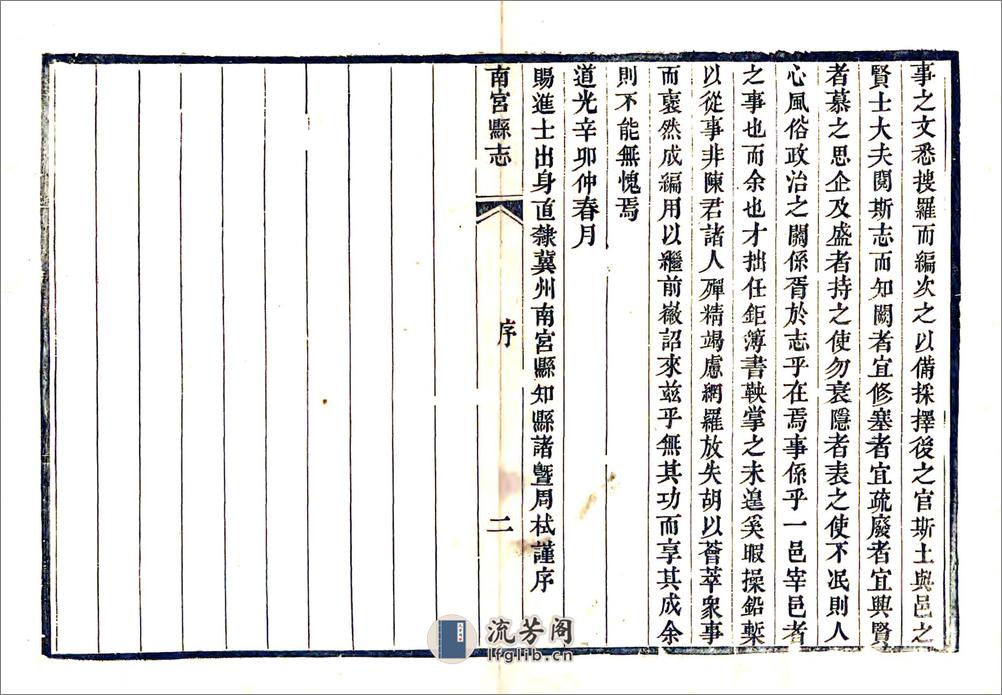 事之文悉搜羅而編次之以備採擇後之官斯土與邑之
賢士大夫閱斯志而知闕者宜修塞者宜疏廢者宜興賢
者慕之思企及盛者持之使勿衰隱者表之使不泯則人
心風俗政治之關係胥於志乎在焉事係乎一邑宰邑者
之事也而余也才拙任鉅簿書鞅掌之未遑奚暇操鉛槧
以從事非陳君諸人殫精竭慮網羅放失胡以薈萃衆事
而裒然成編用以繼前徽詔來茲乎無其功而享其成余
則不能無愧焉
道光辛卯仲春月
賜進士出身直隸冀州南宮縣知縣諸暨周栻謹序
南宮縣志
序
二
流芳阁
lfglib.cn